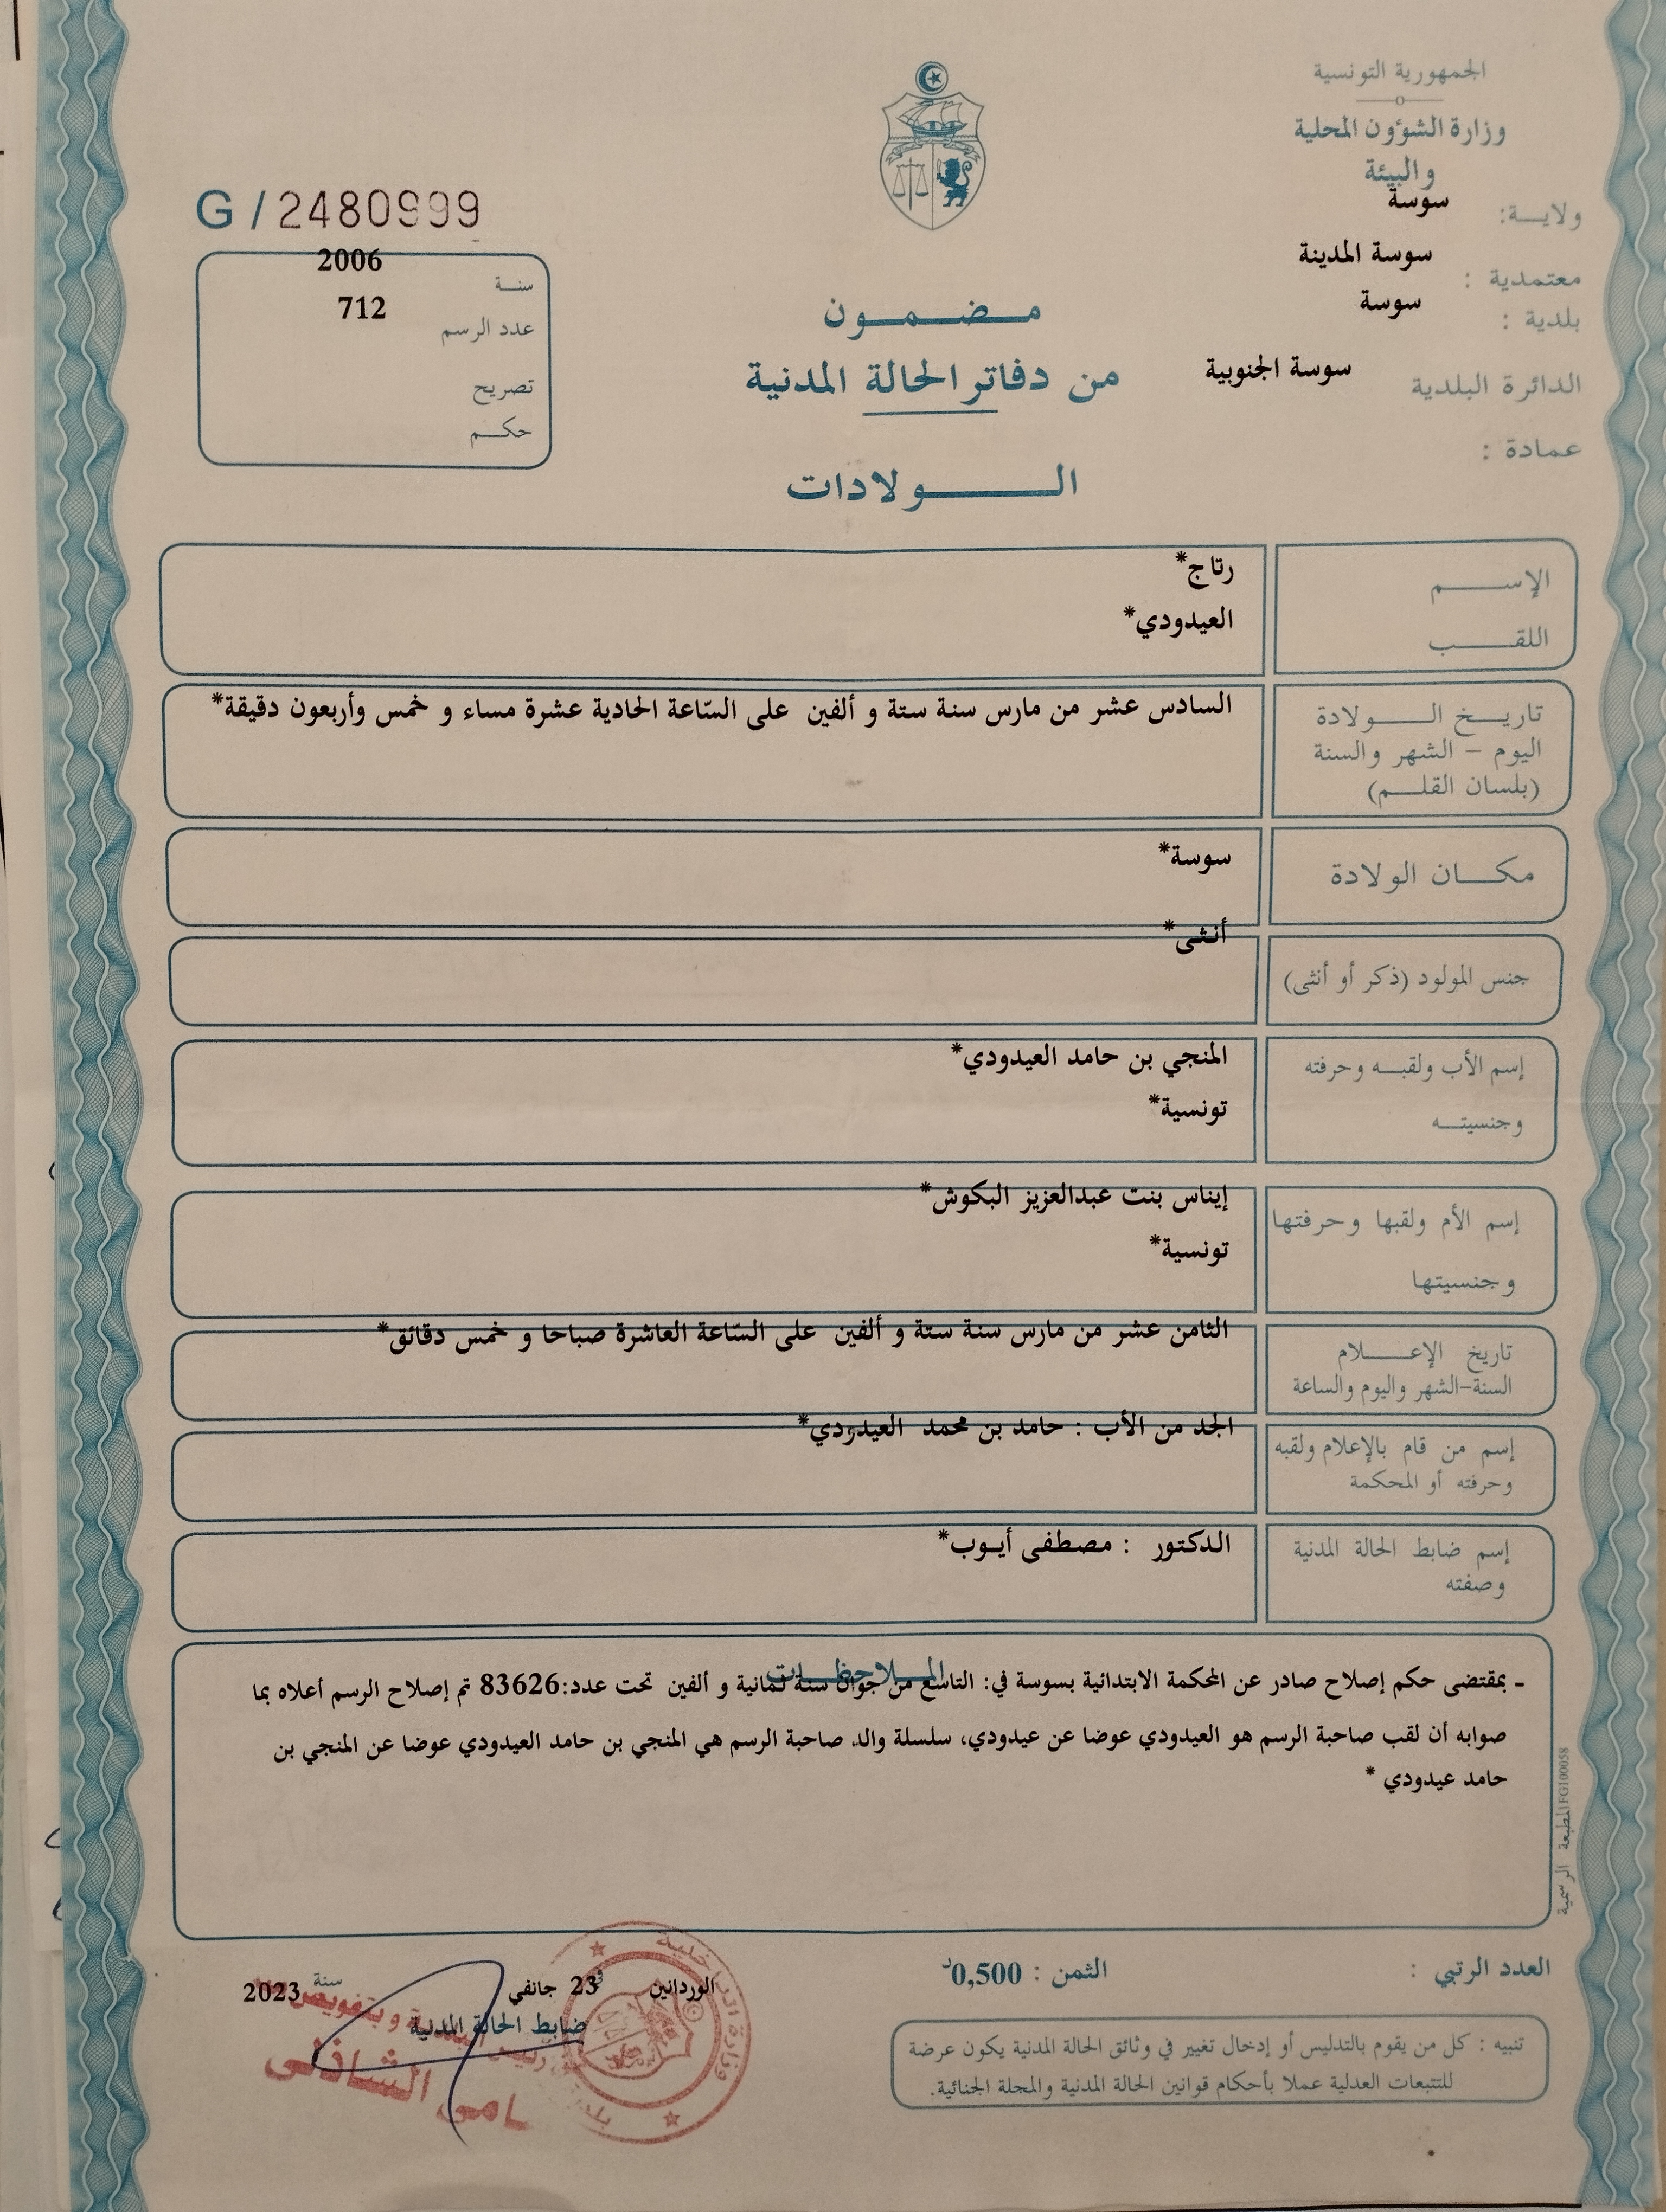 الجمهورية التونسية
وزارة الشؤون المحلية
والبيئة
ولايـــة: سوسة
معتمدية : سوسة المدينة
بلدية : سوسة
الدائرة البلدية سوسة الجنوبية
عمادة :
G / 2480999
سنــة 2006
عدد الرسم 712
تصريح
حكــم
مـضـمـون
من دفاتر الحالة المدنية
الـــولادات
الإســـم رتاج*
اللقـــب العيدودي*
تاريــخ الـــولادة
اليوم – الشهر والسنة
(بلسان القلــم)
السادس عشر من مارس سنة ستة و ألفين على السّاعة الحادية عشرة مساء و خمس وأربعون دقيقة*
مكــان الولادة سوسة*
جنس المولود (ذكر أو أنثى) أنثى*
إسم الأب ولقبــه وحرفته المنجي بن حامد العيدودي*
وجنسيتــه تونسية*
إسم الأم ولقبها وحرفتها إيناس بنت عبدالعزيز البكوش*
وجنسيتها تونسية*
تاريخ الإعـــلام
السنة-الشهر واليوم والساعة
الثامن عشر من مارس سنة ستة و ألفين على السّاعة العاشرة صباحا و خمس دقائق*
إسم من قام بالإعلام ولقبه
وحرفته أو المحكمة
الجد من الأب : حامد بن محمد العيدودي*
إسم ضابط الحالة المدنية
وصفته
الدكتور : مصطفى أيـوب*
المــلاحظــات
- بمقتضى حكم إصلاح صادر عن المحكمة الابتدائية بسوسة في: التاسع من جوان سنة ثمانية و ألفين تحت عدد:83626 تم إصلاح الرسم أعلاه بما
صوابه أن لقب صاحبة الرسم هو العيدودي عوضا عن عيدودي، سلسلة والد صاحبة الرسم هي المنجي بن حامد العيدودي عوضا عن المنجي بن
حامد عيدودي *
المطبعة الرسمية FG100058
العدد الرتبي :
الثمن : 0,500د
الوردانين في 23 جانفي سنة 2023
ضابط الحالة المدنية
الشاذلي
تنبيه : كل من يقوم بالتدليس أو إدخال تغيير في وثائق الحالة المدنية يكون عرضة
للتتبعات العدلية عملا بأحكام قوانين الحالة المدنية والمجلة الجنائية.